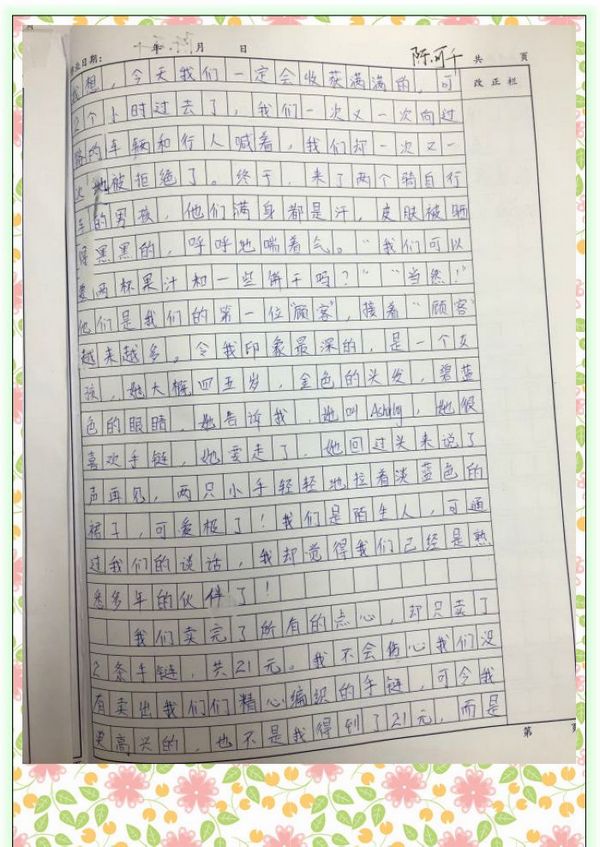 年 月 日
陈可千 共 页
改正栏
我想，今天我们一定会收获满满的，可
2个小时过去了，我们一次又一次向过
路的车辆和行人喊着，我们却一次又一
次地被拒绝了。终于，来了两个骑自行
车的男孩，他们满身都是汗，皮肤被晒
得黑黑的，呼呼地喘着气。“我们可以
要两杯果汁和一些饼干吗？”“当然！”
他们是我们的第一位“顾客”，接着“顾客”
越来越多。令我印象最深的，是一个女
孩，她大概四五岁，金色的头发，碧蓝
色的眼睛，她告诉我，她叫Ashley，她很
喜欢手链，她要走了，她回过头来说了
声再见，两只小手轻轻地拉着淡蓝色的
裙子，可爱极了！我们是陌生人，可通
过我们的谈话，我却觉得我们已经是熟
悉多年的伙伴了！
我们卖完了所有的点心，却只卖了
2条手链，共21元。我不会伤心我们没
有卖出我们们精心编织的手链，可令我
更高兴的，也不是我得到了21元，而是
第 页